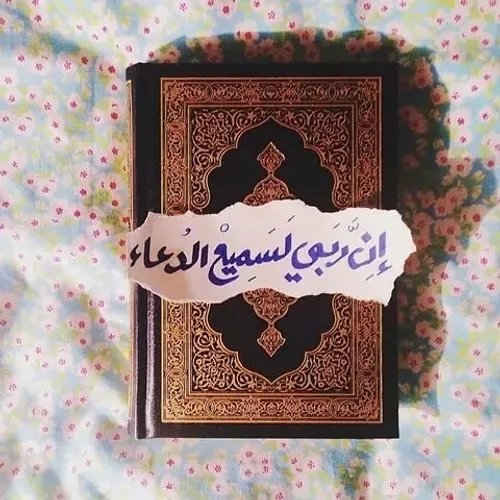 إِنَّ رَبي لَسَمِيْعُ الدُعاء